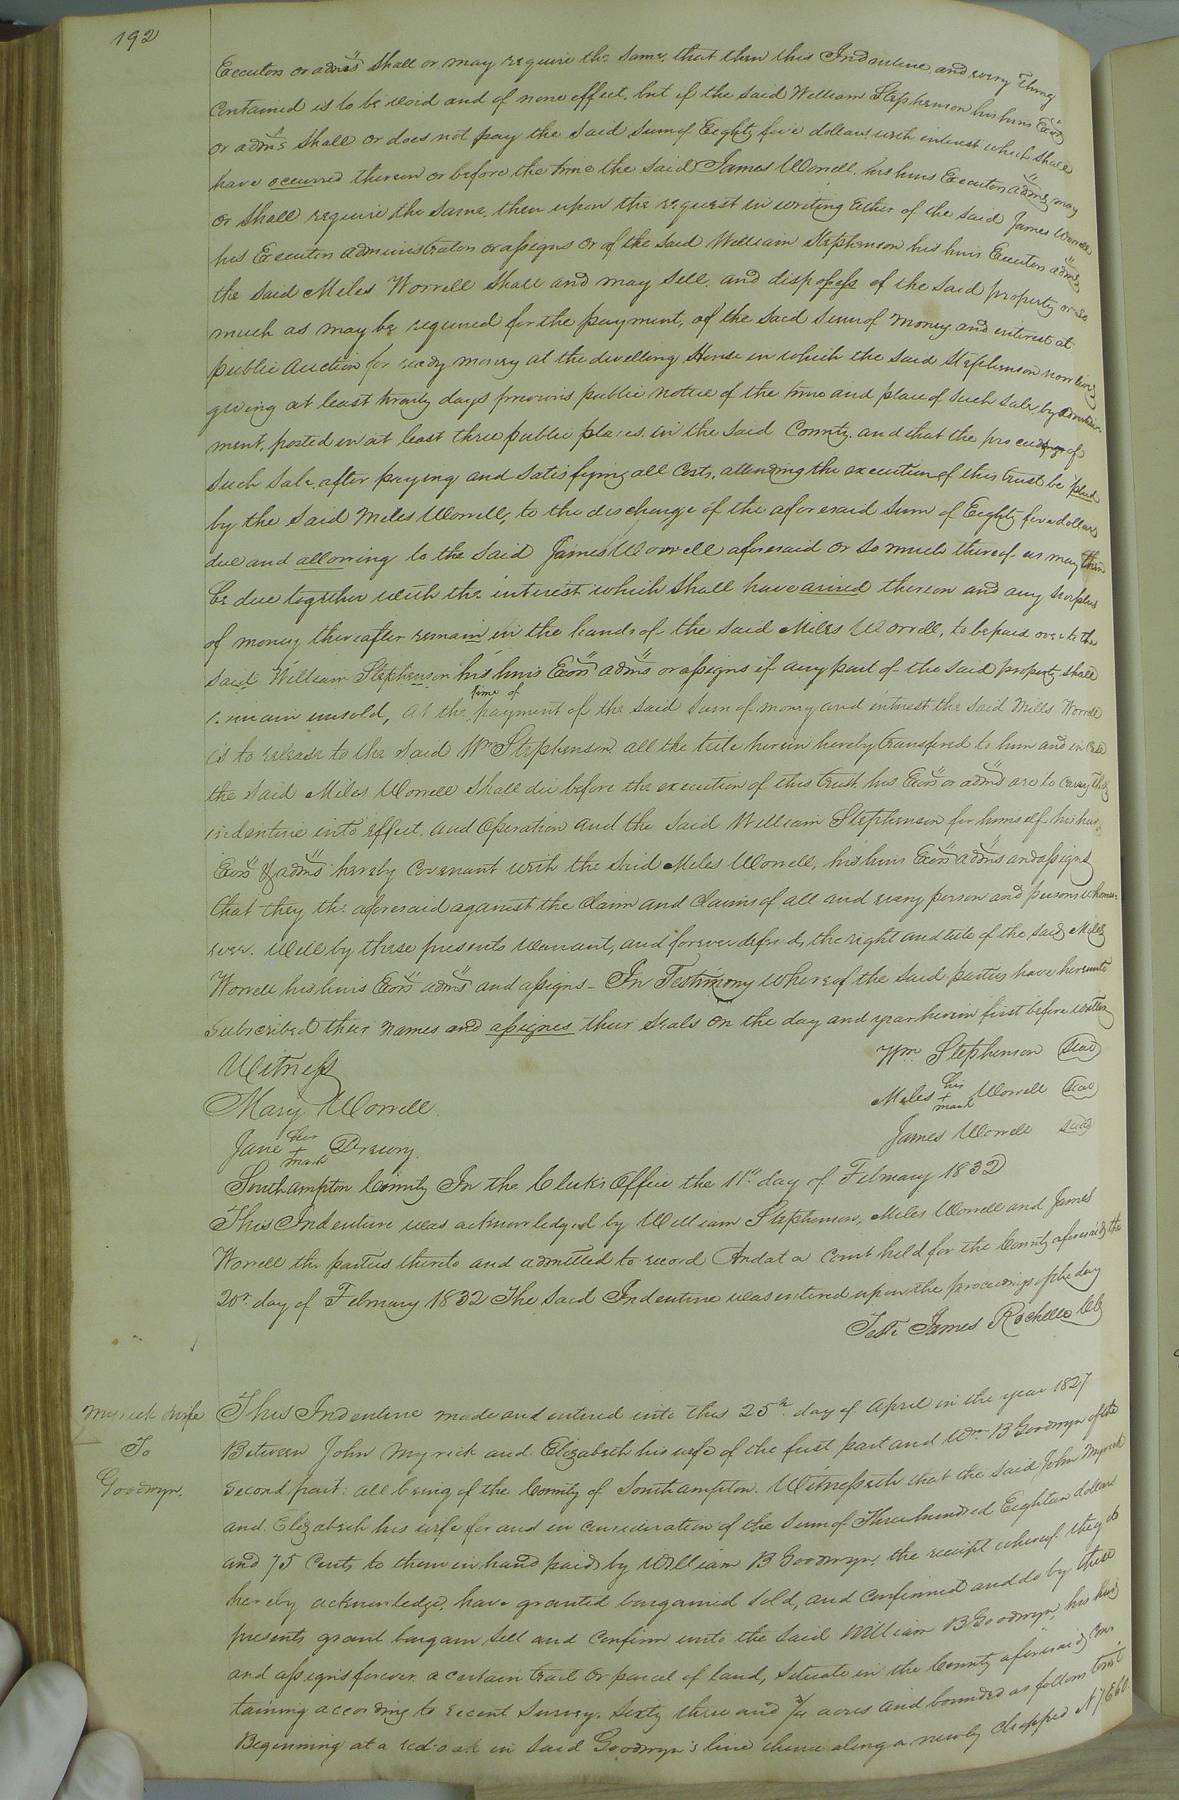 192
Executors or adm's shall or may require the same, that then this Indenture and every thing
contained is to be void and of none effect. but if the said William Stephenson his heirs Exors
or adm's shall or does not pay the said sum of Eighty five dollars with interest which shall
have occurred thereon or before the time the said James Worrell, his heirs Executors adms may
or shall require the same, then upon the request in writing either of the said James Worrell
his Executors administrators or assigns or of the said William Stephenson his heirs Executors adms
the said Miles Worrell shall and may sell, and dispossess of the said property or so
much as may be required for the payment, of the said sum of money and interest at
public auction for ready money at the dwelling House in which the said Stephenson now lives
giving at least twenty days previous public notice of the time and place of such sale by advertise-
ment, posted in at least three public places in the said County. and that the proceeds of
such sale, after paying and satisfying all costs, attending the execution of this trust be paid
by the said Miles Worrell, to the discharge of the aforesaid sum of Eighty five dollars
due and allowing to the said James Worrell aforesaid or so much thereof as may then
be due together with the interest which shall have arised thereon and any surplus
of money thereafter remain in the hands of the said Miles Worrell, to be paid over to the
said William Stephenson his heirs Exors adms or assigns if any part of the said property shall
remain unsold, at the time of payment of the said sum of money and interest the said Mills Worrell
is to release to the said Wm Stephenson all the title herein hereby transfered to him and in case
the said Miles Worrell shall die before the execution of this trust his Exors or adms are to carry this
indenture into effect and operation and the said William Stephenson for himself his heirs
Exors & adms hereby covenant with the said Miles Worrell, his heirs Exors adms and assigns
that they the aforesaid against the claim and claims of all and every person and persons whomso-
ever. Will by these presents warrant, and forever defend, the right and title of the said Miles
Worrell his heirs Exors adms and assigns - In Testimony whereof the said parties have hereunto
subscribed their names and assignes their seals on the day and year herein first before written
Witness
Wm Stephenson Seal
Mary Worrell
Miles his + mark Worrell Seal
Jane her + mark Drewry.
James Worrell Seal
Southampton County In the Clerk's Office the 11th day of February 1832
This Indenture was acknowledged by William Stephenson, Miles Worrell and James
Worrell the parties thereto and admitted to record And at a Court held for the County aforesaid the
20th day of February 1832 The said Indenture was entered upon the proceedings of the day
Teste James Rochelle Clk
Myrick & wife
To
Goodwyn.
This Indenture made and entered into this 25th day of April in the year 1827
Between John Myrick and Elizabeth his wife of the first part and Wm B Goodwyn of the
second part: all being of the County of Southampton. Witnesseth that the said John Myrick
and Elizabeth his wife for and in consideration of the sum of Three hundred Eighteen dollars
and 75 Cents to them in hand paid by William B Goodwyn, the receipt whereof they do
hereby acknowledge, have granted bargained sold, and confirmed and do by these
presents grant bargain sell and confirm unto the said William B Goodwyn, his heirs
and assigns forever a certain tract or parcel of land, situate in the County aforesaid con-
taining according to recent survey, sixty three and 3/4 acres and bounded as follows to wit
Beginning at a red oak in said Goodwyn's line thence along a newly chopped N 7 E 60